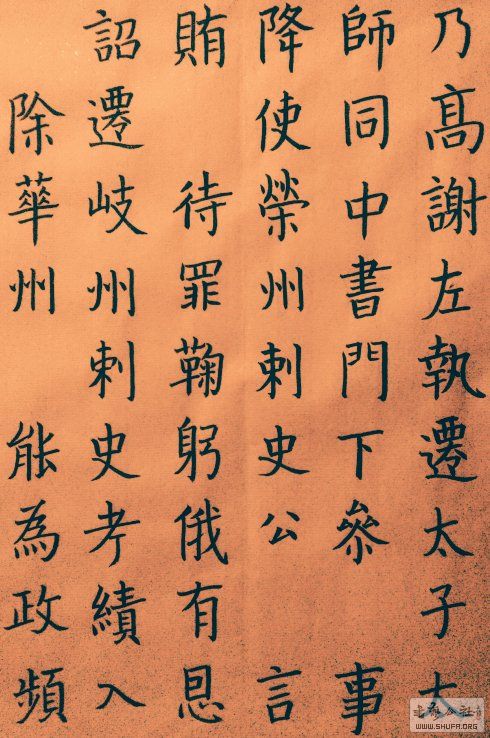 乃高謝左執遷太子太
師同中書門下叅 事
降使榮州刺史公 言
賄 待罪鞠躬俄有恩
詔遷岐州刺史考績入
除華州 能為政頻
WWW.SHUFA.ORG